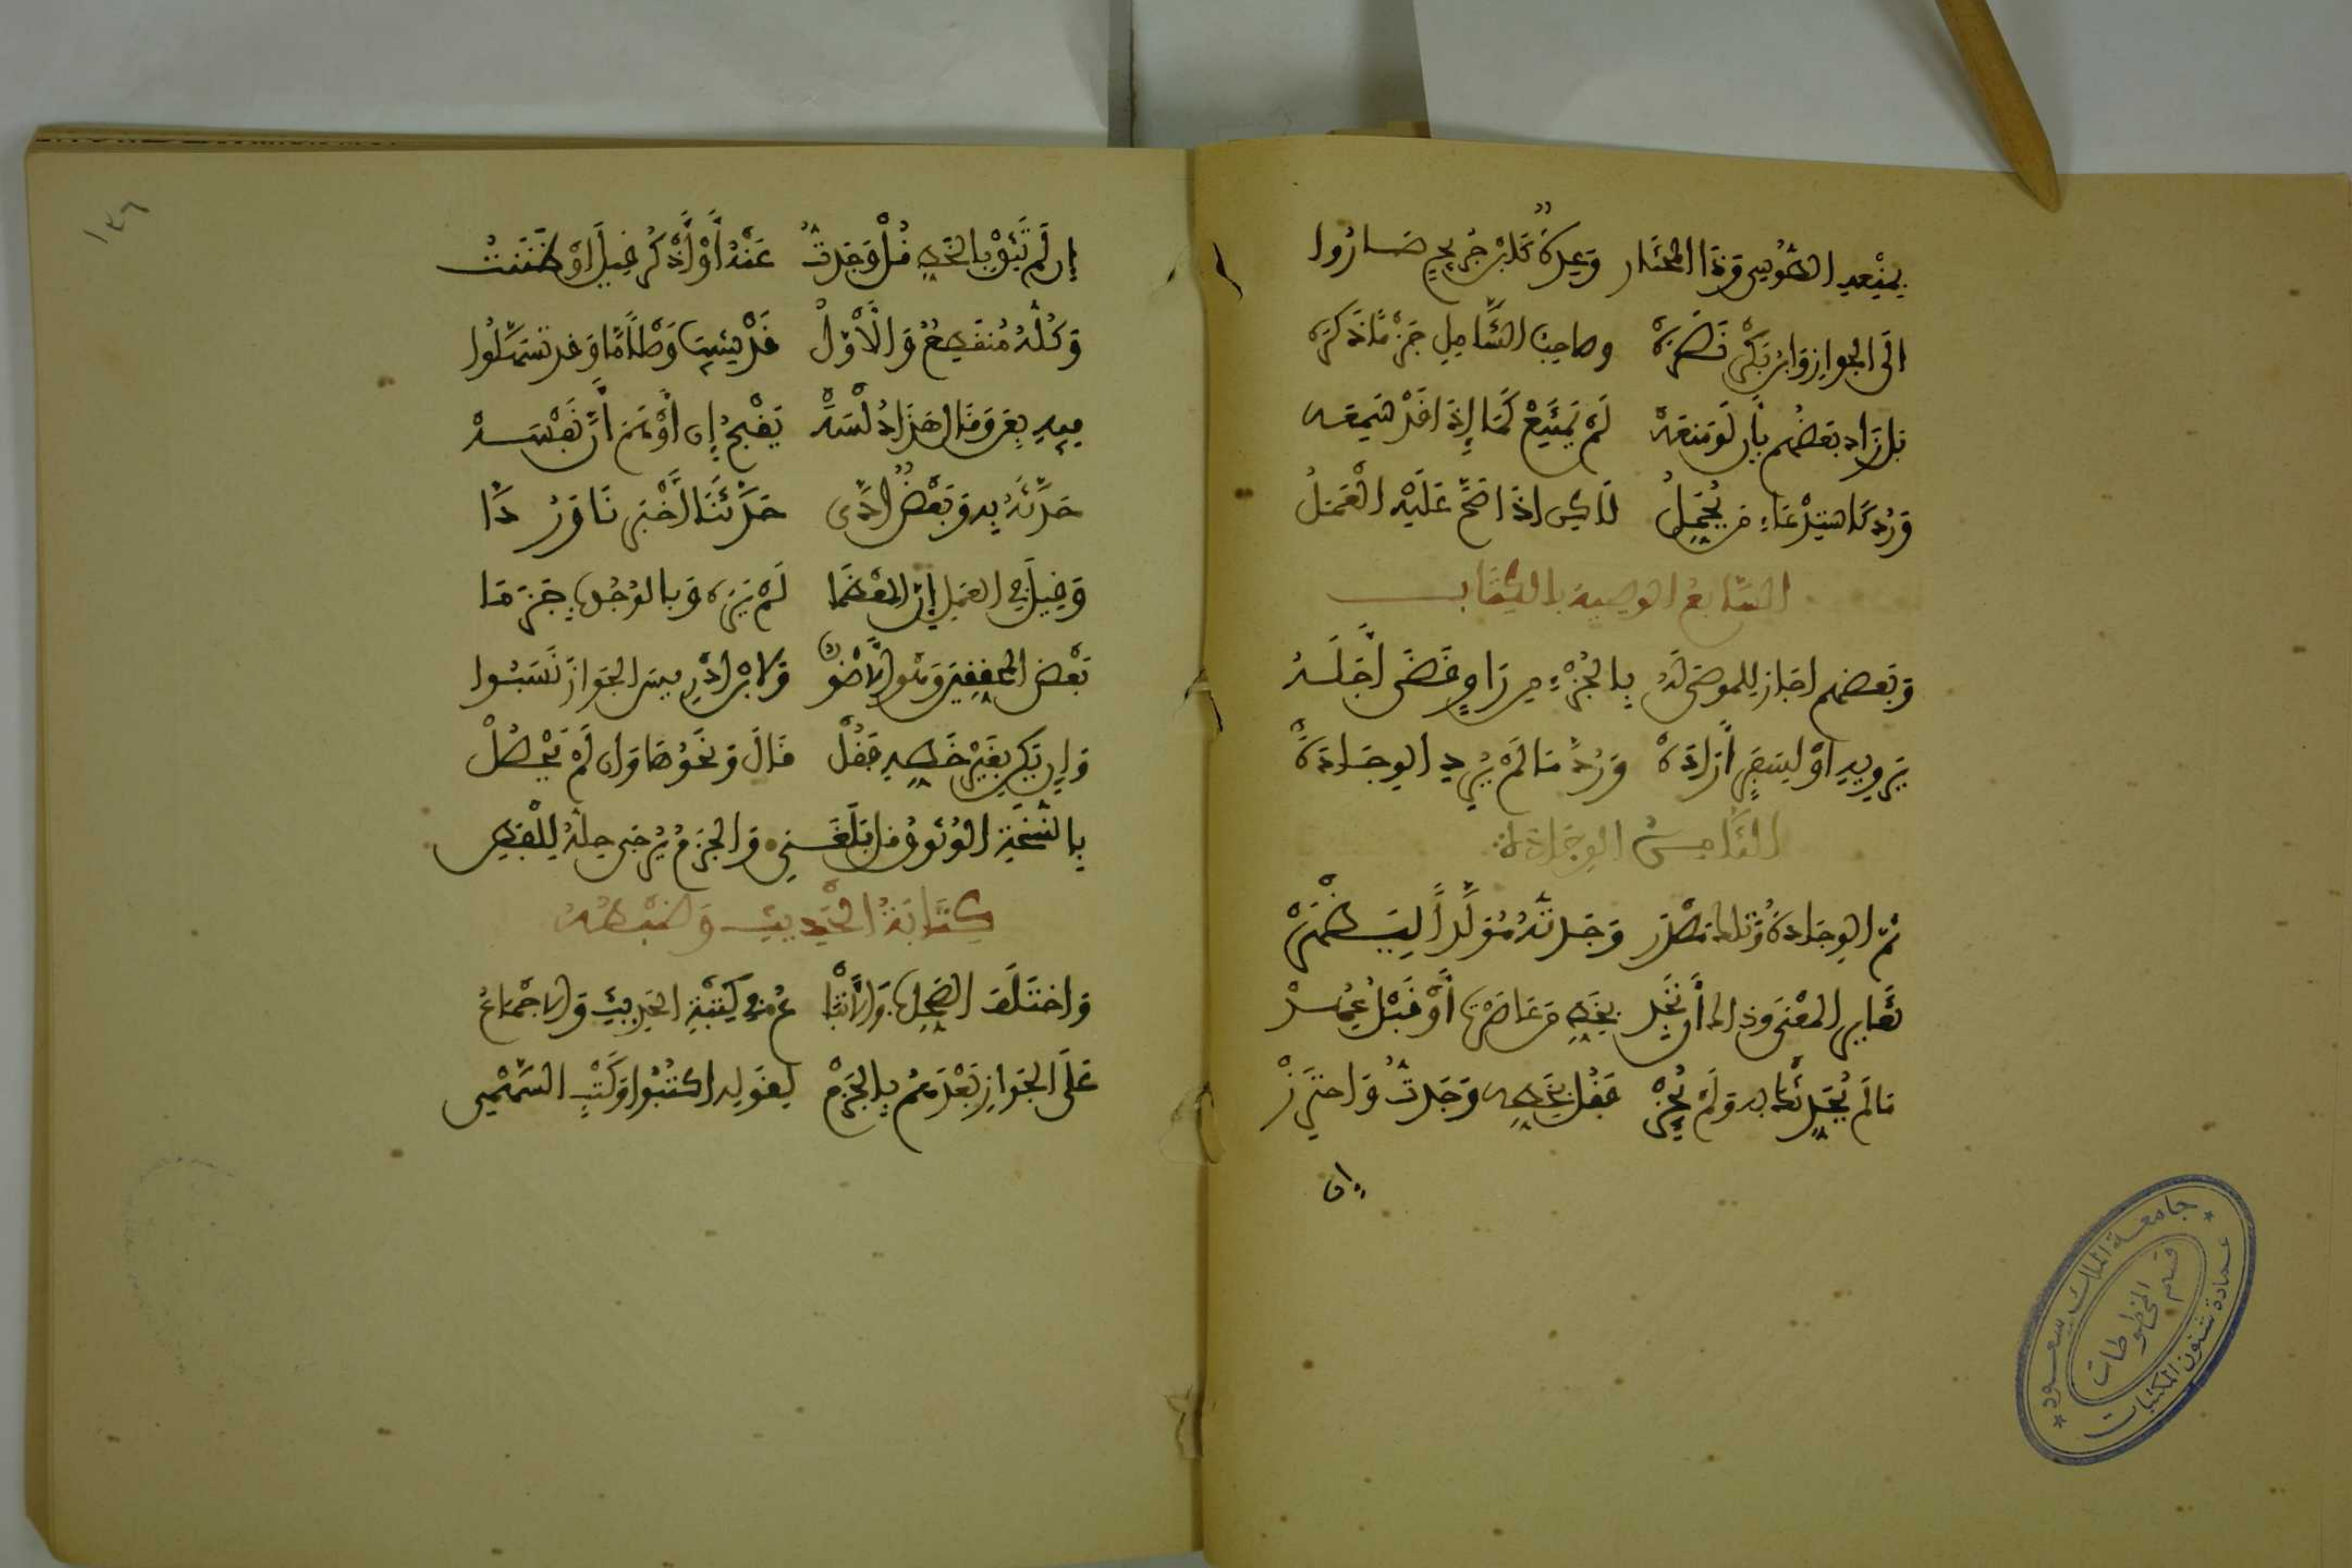 بمنعه الطوسي وذا المختار وعدة كابن جريج صاروا
الى الجواز وابن بكر نصره وصاحب الشامل جزما ذكره
بل زاد بعضهم بأن لو منعه لم يمتنع كما إذا قد سمعه
ورد كاسترعاء من يحمل لاكن اذا صح عليه العمل
السابع الوصية بالكتاب
وبعضهم اجاز للموصى له بالجزء من راو قضى أجله
يرويه او لسفر أراده ورد ما لم يرد الوجاده
الثامن الوجادة
ثم الوجادة وتلك مصدر وجدته مولدا ليظهر
تغاير المعنى وذاك أن تجد بخط من عاصرت أو قبل عهد
ما لم يحدثك به ولم يجز فقل بخطه وجدت واحترز
إن
١٣٦
إن لم تثق بالخط قل وجدت عنه أو أذكر قيل او ظننت
وكله منقطع والأول قد شيب وصلا ما وقد تسهلوا
فيه بعن وقال هذا دلسه يقبح إن أوهم أن نفسه
حدثه به وبعض أدى حدثنا أخبرنا وردا
وقيل في العمل إن المعظما لم يره وبالوجوب جزما
بعض المحققين وهو الأصوب ولابن ادريس الجواز نسبوا
وإن يكن بغير خطه فقل قال ونحوها وان لم يحصل
بالنسخة الوثوق قل بلغني والجزم يرجى حله للفطن
كتابة الحديث وضبطه
واختلف الصحاب والأتباع في كتبة الحديث والاجماع
على الجواز بعدهم بالجزم لقوله اكتبوا وكتب السهمي
جامعة الملك سعود
عمادة شئون المكتبات
قسم المخطوطات